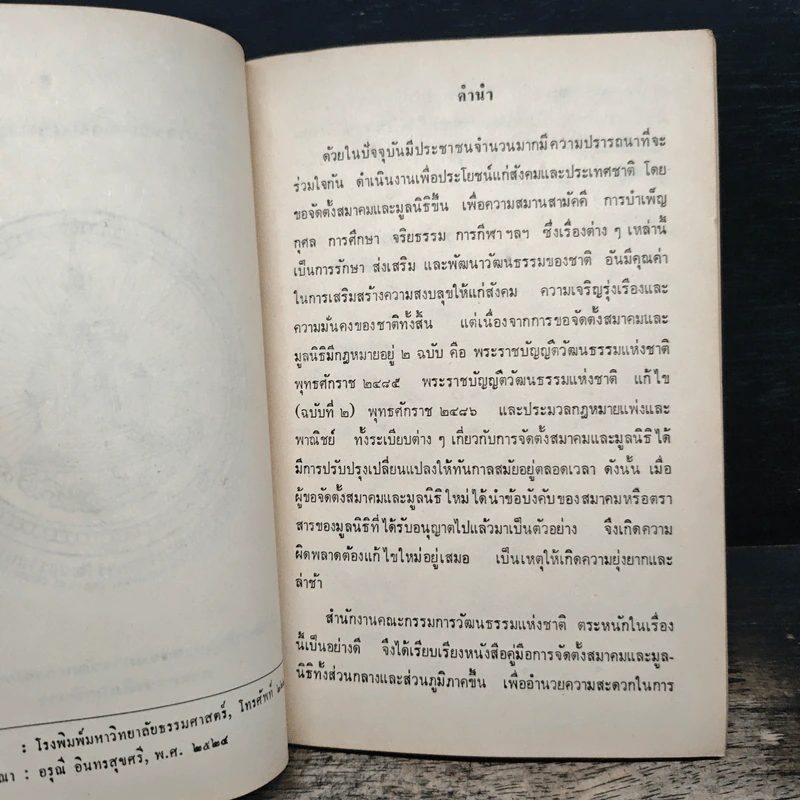 : โรงพิมพ์มหาวิทยาลัยธรรมศาสตร์, โทรศัพท์
: อรุณี อินทรสุขศรี, พ.ศ. ๒๕๒๔
คำนำ
ด้วยในปัจจุบันมีประชาชนจำนวนมากมีความปรารถนาที่จะ
ร่วมใจกัน ดำเนินงานเพื่อประโยชน์แก่สังคมและประเทศชาติ โดย
ขอจัดตั้งสมาคมและมูลนิธิขึ้น เพื่อความสมานสามัคคี การบำเพ็ญ
กุศล การศึกษา จริยธรรม การกีฬา ฯลฯ ซึ่งเรื่องต่าง ๆ เหล่านี้
เป็นการรักษา ส่งเสริม และพัฒนาวัฒนธรรมของชาติ อันมีคุณค่า
ในการเสริมสร้างความสงบสุขให้แก่สังคม ความเจริญรุ่งเรืองและ
ความมั่นคงของชาติทั้งสิ้น แต่เนื่องจากการขอจัดตั้งสมาคมและ
มูลนิธิมีกฎหมายอยู่ ๒ ฉบับ คือ พระราชบัญญัติวัฒนธรรมแห่งชาติ
พุทธศักราช ๒๔๘๕ พระราชบัญญัติวัฒนธรรมแห่งชาติ แก้ไข
(ฉบับที่ ๒) พุทธศักราช ๒๔๘๖ และประมวลกฎหมายแพ่งและ
พาณิชย์ ทั้งระเบียบต่าง ๆ เกี่ยวกับการจัดตั้งสมาคมและมูลนิธิได้
มีการปรับปรุงเปลี่ยนแปลงให้ทันกาลสมัยอยู่ตลอดเวลา ดังนั้น เมื่อ
ผู้ขอจัดตั้งสมาคมและมูลนิธิใหม่ได้นำข้อบังคับของสมาคมหรือตรา
สารของมูลนิธิที่ได้รับอนุญาตไปแล้วมาเป็นตัวอย่าง จึงเกิดความ
ผิดพลาดต้องแก้ไขใหม่อยู่เสมอ เป็นเหตุให้เกิดความยุ่งยากและ
ล่าช้า
สำนักงานคณะกรรมการวัฒนธรรมแห่งชาติ ตระหนักในเรื่อง
นี้เป็นอย่างดี จึงได้เรียบเรียงหนังสือคู่มือการจัดตั้งสมาคมและมูล-
นิธิทั้งส่วนกลางและส่วนภูมิภาคขึ้น เพื่ออำนวยความสะดวกในการ